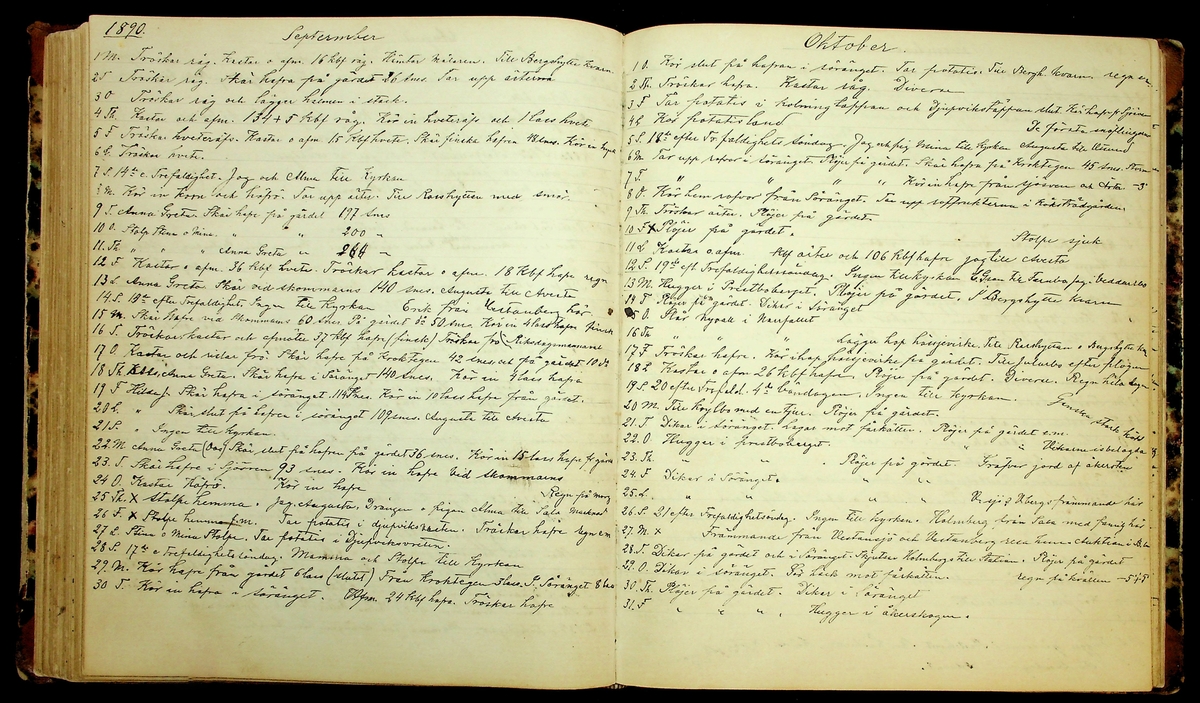 1890.
September
1 M. Tröskar råg. Kastar o afm. 16 kbf råg. Hemtar Till Bergshytte kvarn
2 T Tröskar råg. Skär hafra på gärdet 26 snes. Tar upp ärterna
3 O Tröskar råg och lägger halmen i stack.
4 Th. Kastar och afm. 13½ + 5 kbf råg. Kör in hveteräfs och 1 lass hvete
5 F Tröskar hveteräfs. Kastar o afm 15 kbf hvete. Skär finska hafren 48 snes. Kör in
6 L. Tröskar hvete.
7 S. 14de e. Trefaldighet. Jag och Alma till Kyrkan
8 M. Kör in korn och Håfrö. Tar upp ärter. Till Rosshyttan med smör.
9 T. Anna Greta. Skär hafe på gärdet 197 snes
10 O. Stolp Stina o Mina. " " 200 "
11. Th. " " " Anna Greta " 264 "
12 F Kastar o afm. 36 kbf hvete. Tröskar kastar o afm. 18 kbf hafe regn
13 L Anna Greta Skär vid skommarns 140 snes. Augusta till Avesta
14 S. 15de efter Trefaldighet. Ingen till kyrkan Erik från Vestanberg här
15 M. Skär hafre vid skommarns 60 snes. På gärdet do 50 snes. Kör in 4 lass hafra finsk
16 T. Tröskar kastar och afmäter 37 kbf hafre (finsk) Tröskar frö Riksdagsmannaval
17 O. Kastar och relar frö. Skär hafe på Kroktegen 42 snes och på gärdet 10 do
18 Th. Anna Greta. Skär hafre i Söränget 140 snes. Kör in 4 lass hafra
19 F Skär hafra i söränget 114 snes. Kör in 10 lass hafre från gärdet.
20 L. " Skär slut på hafren i söränget 109 snes. Augusta till Avesta
21 S. " Ingen till kyrkan.
22. M Anna Greta (Oas) Skär slut på hafren på gärdet 36 snes. Kör in 15 lass hafre fr gärdet
23. T Skär hafre i tjärn 93 snes. Kör in hafe vid skommarns
24 O. Kastar Håfrö. Kör in hafre
Regn på morg
25 Th. x Stolpe hemma. Jag, Augusta, Drängen o pigan Alma till Sala marknad
26 F. x Stolpe hemma f.m. Tar potatis i djupviksvreten. Tröskar hafre regn e.m
27 L. Stina o Mina Stolpe. Tar potatis i Djupviksvreten.
28 S. 17de e Trefaldighets söndag. Mamma och Stolpe till kyrkan
29. M. Kör hafre från gärdet 6 lass (slutet) Från Kroktegen 3 lass. I Söränget 8 lass
30 T. Kör in hafra i söränget. Afm. 24 kbf hafra. Tröskar hafre
Oktober.
1 O. Kör slut på hafran i söränget. Tar potatis. Till Bergh. kvarn. regn em
2 Th. Tröskar hafra. Kastar råg. Diverse
3 F Tar potatis i holmingtäppan och Djupvikstäppan slut. Kör hafra fr tjärn
4 L Kör potatisland De första snöflingorna
5 S. 18de efter Trefaldighets söndag. Jag och pig Mina till kyrkan Augusta till
6 M Tar upp rofvor i söränget. Plöjer på gärdet. Skär hafra på Kroktegen 45 snes.
7 T. " " " " Kör in hafre från sjösven och Arta −3°
8 O. Kör hem rofvor från Söränget. Tar upp rotfrukterna i köksträdgården
9 Th. Tröskar ärter. Plöjer på gärdet.
10 F x Plöjer på gärdet. Stolpe sjuk
11 L. Kastar o afm. kbf ärter och 106 kbf hafre jag till Avesta
12 S. 19de eft Trefaldighetssöndag. Ingen till kyrkan
13 M. Hugger i Prestboberget. Plöjer på gärdet. T Bergshytte kvarn
14 T Plöjer på gärdet. Dikar i Söränget
15 O. Slår myrall i Narsfallet
16 Th Lägger hop hässjevirke. Till Rosshyttan o Bergshytte kv.
17 F Tröskar hafre. Kör ihop hässjevirke på gärdet. Till Julubo efter plogen
18 L Kastar o afm 26 kbf hafre. Plöjer på gärdet. Diverse. Regn hela dagen
19 S. 20 efter Trefald. 4de böndagen. Ingen till kyrkan.
20 M. Till Högbo med en tjur. Plöjer på gärdet. Ganska stark köld
21 T Dikar i söränget. Lagar mot fårkätten. Plöjer på gärdet e.m.
22 O. Hugger i prestboberget. " " Vikarne isbelagda
23. Th. " " Plöjer på gärdet. Gräfver jord af åkersten
24 F Dikar i Söränget. " " "
25. L. " " " " " främmande här
26. S. 21 efter Trefaldighetssöndag. Ingen till kyrkan. Holmberg från Sala med familj här
27. M. x Främmande från Vestansjö och Vestanberg resa hem. Auktion i
28. T. Dikar på gärdet och i söränget. Skjutsar Holmbergs till station. Plöjer på gärdet
29. O. Dikar i söränget. På lack mot fårkätten. regn på kvällen −5½°
30. Th. Plöjer på gärdet. Dikar i Söränget
31. F " " " " Hugger i åkerskogen.